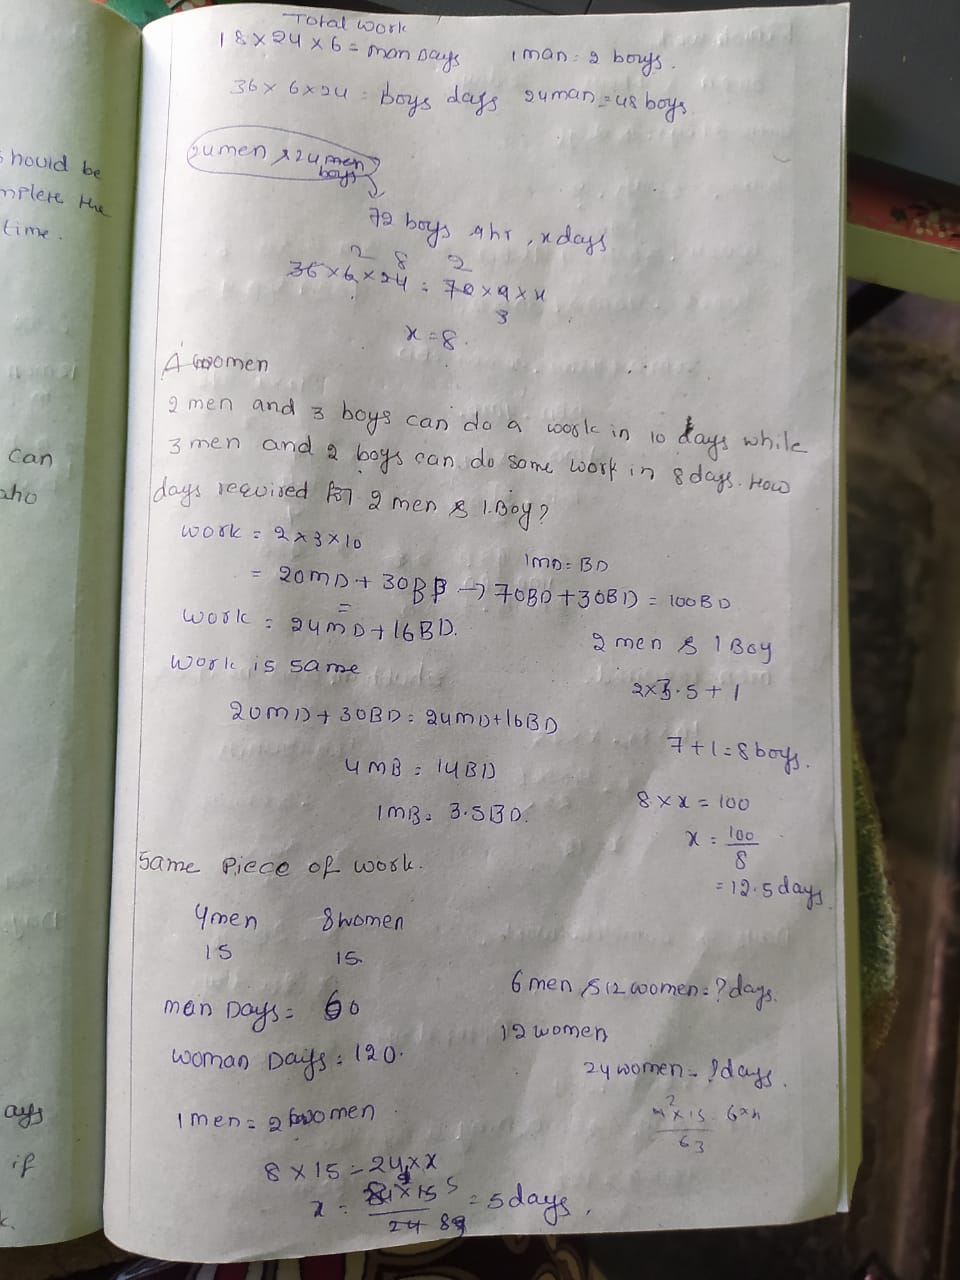 Total work
18 × 24 × 6 = man Days 1 man = 2 boys.
36 × 6 × 24 = boys days 24 man = 48 boys
24 men × 24 men
boys
72 boys 9 hr, x days
2 8 2
36 × 6 × 24 = 72 × 9 × x
3
x = 8.
should be
mplete the
time.
A women
2 men and 3 boys can do a work in 10 days while
3 men and 2 boys can do same work in 8 days. How
days required for 2 men & 1 Boy?
can
who
work = 2 × 3 × 10
1MD = BD
= 20MD + 30BD → 70BD + 30BD = 100BD
work = 24MD + 16BD.
2 men & 1 Boy
work is same
2 × 3.5 + 1
20MD + 30BD = 24MD + 16BD
7 + 1 = 8 boys.
4MB = 14BD
8 × x = 100
1MB = 3.5BD.
x = 100
8
= 12.5 days
Same Piece of work.
4 men 8 women
15 15
6 men & 12 women = ? days.
man Days = 60
12 women
woman Days = 120.
24 women = ? days.
1 men = 2 women
8 × 15 = 24 × x
x = 8 × 15 5 = 5 days,
24
ays
if